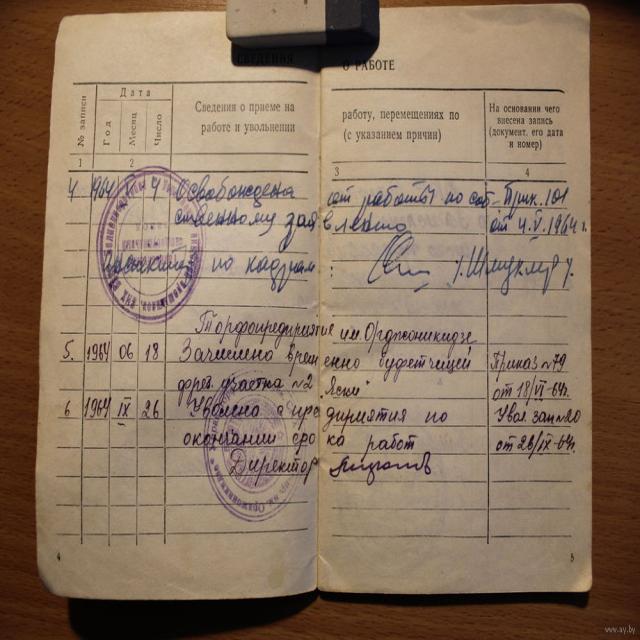 СВЕДЕНИЯ О РАБОТЕ
№ записи
Дата
Год
Месяц
Число
Сведения о приеме на работу, перемещениях по
работе и увольнении (с указанием причин)
На основании чего
внесена запись
(документ, его дата
и номер)
1 2 3 4
4 1964 V 4 Освобождена от работы по соб- Прик. 101
ственному заявлению от 4.V.1964 г.
по кадрам:
Торфопредприятие им. Орджоникидзе
5. 1964 06 18 Зачислена временно буфетчицей Приказ №79
фрез. участка №2 "Яски" от 18/VI-64г.
6 1964 IX 26 Уволена с предприятия по Увол. зап №20
окончании срока работ от 26/IX-64г.
Директор
4 5
www.ay.by